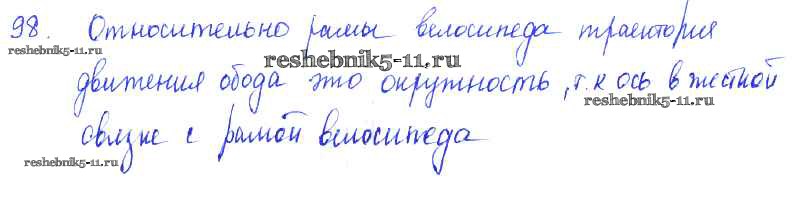 98. Относительно рамы велосипеда траектория
reshebnik5-11.ru
reshebnik5-11.ru
движения обода это окружность, т.к ось в жесткой
reshebnik5-11.ru
связке с рамой велосипеда
reshebnik5-11.ru